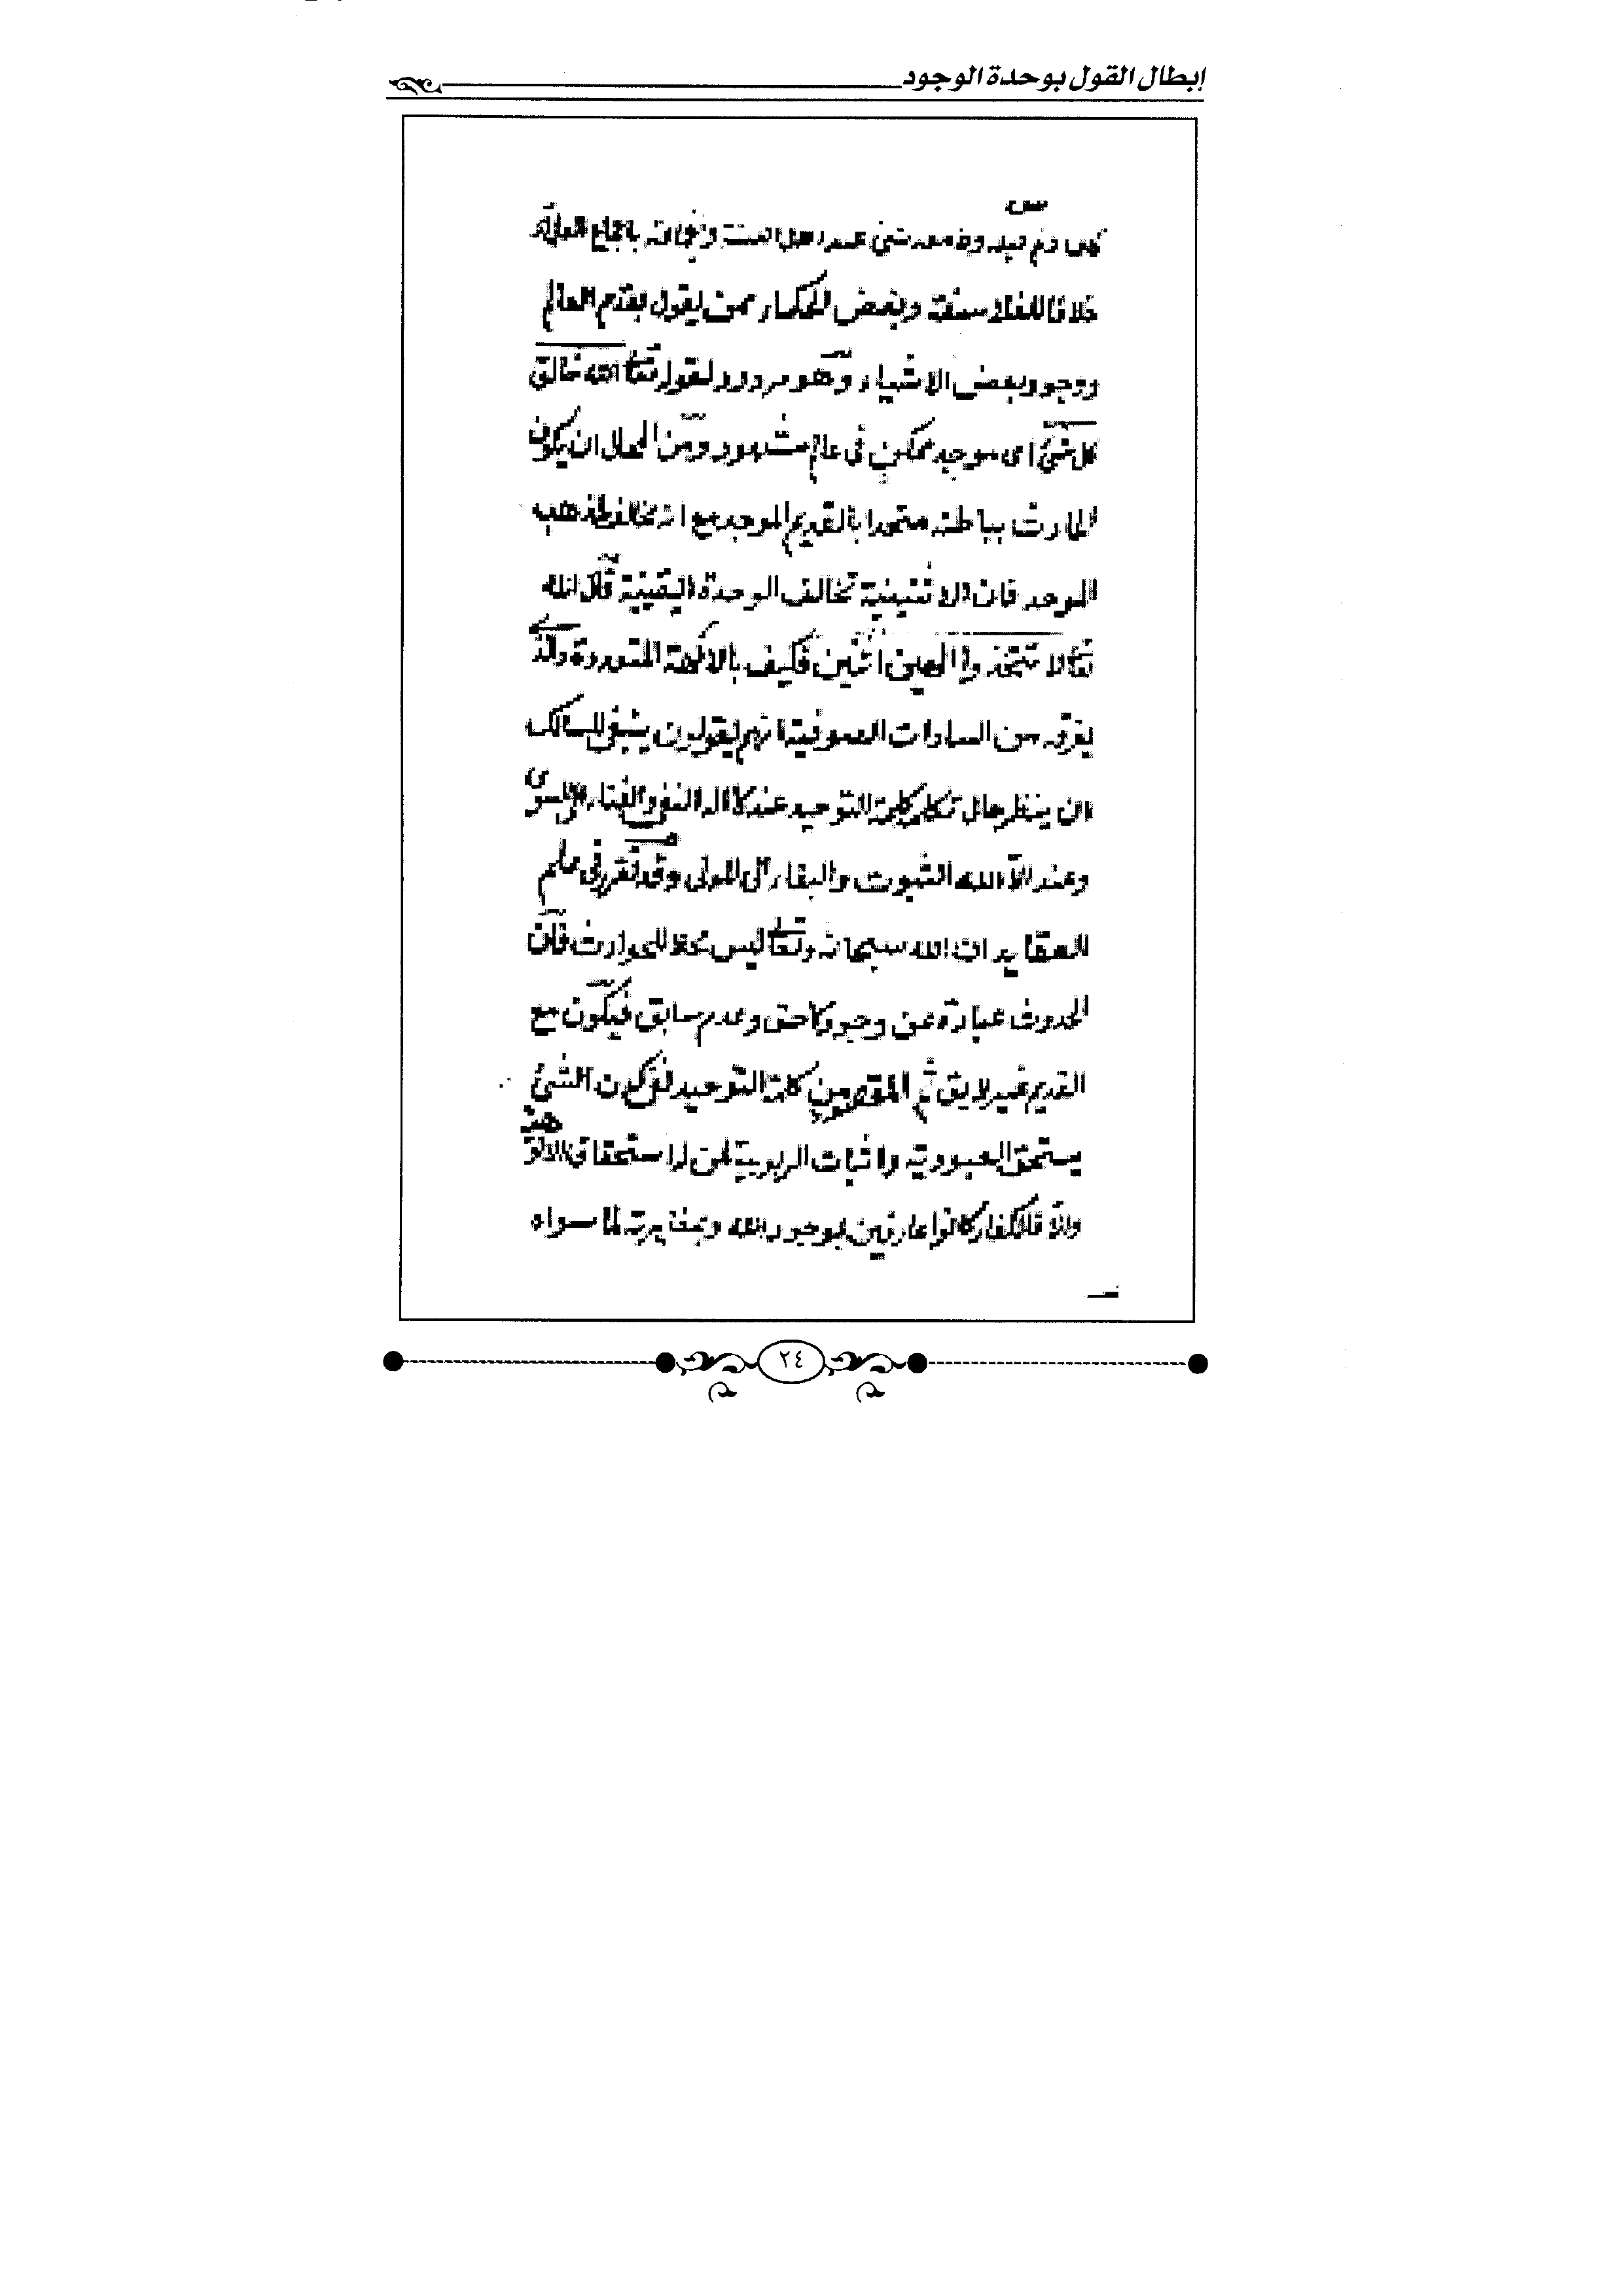 إبطال القول بوحدة الوجود
شئ عند اهل السنة والجماعة باجماع العلماء
خلافا للفلاسفة وبعض الحكماء ممن يقول بقدم العالم
ووجود بعض الاشياء وهو مردود لقوله تعا الله خالق
كل شئ اى موجد ممكن فى عالم مشهود ومن المحال ان يكون
الحادث بباطنه متحدا بالقديم الموجد مع انه مخالف لمذهب
الموحد فان الاثنينية تخالف الوحدة اليقينية قال الله
تعا لا تتخذوا الهين اثنين فكيف بالالهة المتعددة والذى
من السادات الصوفية انهم يقولون ينبغى للسالك
ان ينظر حال تكلم كلمة التوحيد عند لا اله النفى والفناء السوى
وعند الا الله الثبوت والبقاء الى المولى وقد تقرر فى علم
العقايد ان الله سبحانه وتعالى ليس محلا للحوادث فان
الحدوث عبارة عن وجود لاحق وعدم سابق فيكون مع
القديم غير لايق ثم المقصود من كلمة التوحيد نفى كون الشئ
يستحق العبودية واثبات الربوبية لمن له استحقاق الالوهية
والا فالكفار كانوا عارفين بوجود الله وبمغايرته لما سواه
٢٤